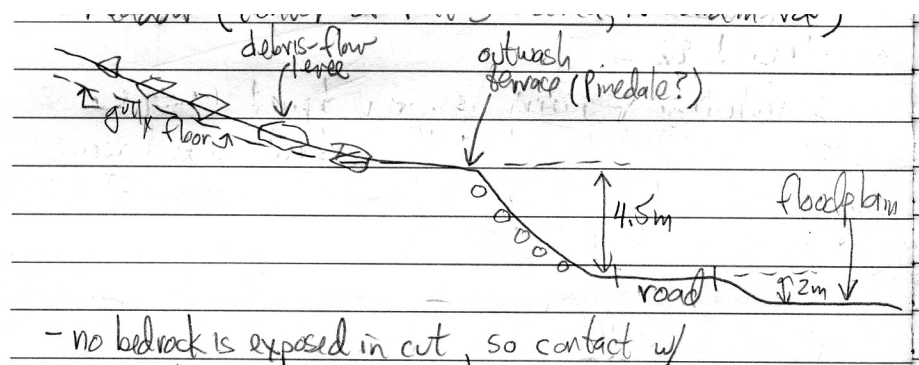 debris-flow
levee
outwash
terrace (Pinedale?)
gully
floor
4.5m
floodplain
road
2m
- no bedrock is exposed in cut, so contact w/